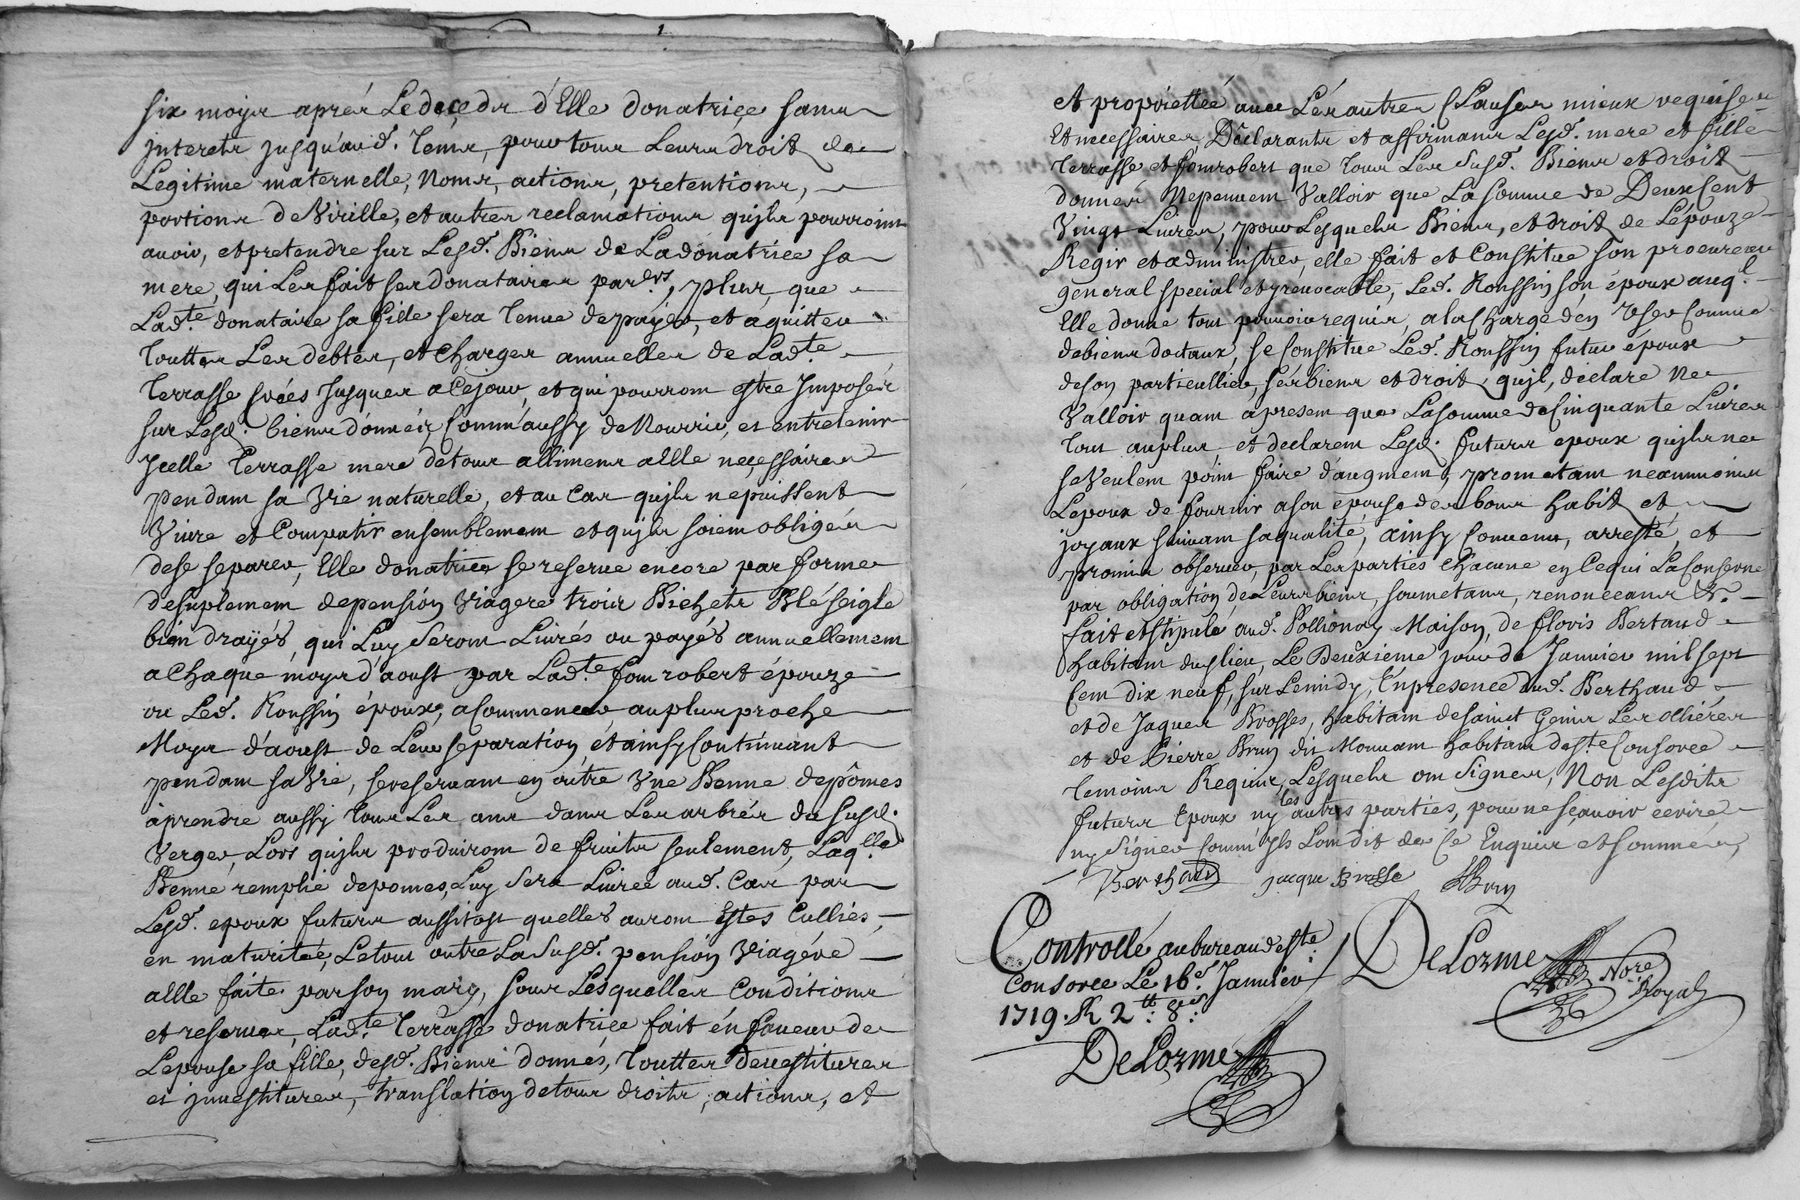 six moys aprés Le deçeds d'Elle donatriçe sans
jnterets jusqu'aud. tems, pour tous Leurs droits de
Legitime maternelle, Noms, actions, pretentions,
portions de Virille, et autres reclamations qujls pourroint
auoir, et pretendre sur Lesd. Biens de La donatrice sa
mere, qui Les fait ses donataires par , plus, que
Lad.te donataire sa fille sera tenue de payer, et aquitter
touttes Les debtes, et charges annuelles de Lad.te
Terrasse Jusques a Ce jour, et qui pourront estre Imposés
sur Lesd. biens donnés, Comm'aussy de Nourrir, et entretenir
Jcelle Terrasse mere de tous alliments a Elle neçessaires
pendant sa Vie naturelle, et au Cas qujls ne puissent
Viure et Compatir ensemblement et qujls soient obligés
de se separer, Elle donatrice se reserue encore par forme
de suplement de pension Viagere trois Bichets Blé seigle
bien drayés, qui Luy seront Liurés ou payés annuellement
a Chaque moys d'aoust par Lad.te fomrobert épouze
ou Led. Roussin époux, a Commencer au plus proche
Moys d'aoust de Leur separation, et ainsy Continuant
pendant sa Vie, se reseruant en outre Vne Benne de pômes
à prendre aussy tous Les ans dans Les arbrés du susd.
Verger, Lors qujls produiront de fruits seulement, Laq.lle
Benne remplie de pomes, Luy sera Liurée aud. Cas par
Lesd. epoux futurs aussitost quelles auront Estes Culliés,
en maturitée, Le tout outre La susd. pension Viagére
a Elle faite par son mary, sous Lesquelles Conditions
et reserues, Lad.te Terrasse donatriçe fait én faueur de
Lepouse sa fille, desd. Biens donnés, touttes deuestitures
et jnuestitures, translation de tous droits, actions, et
et propriettée auec Lés autres Clauses mieux requises
Et necessaires, Déclarants et affirmants Lesd. mere et fille
Terrasse et fomrobert que tous Les susd. Biens et droits
donnés Ne peuuent Valloir que La somme de Deux Cent
Vingt Liures, pour Lesquels Biens, et droits de Lépouze
Regir et administrer, elle fait et Constitue son procureur
general special et jrreuocable, Led. Roussin son époux auq.l
Elle donne tout pouuoir requis, a la Charge d'en Vser Comme
de biens dotaux, se Constitue Led. Roussin futur époux
de son particullier, sés biens et droits, qujl déclare Ne
Valloir quant a present que La somme de Cinquante Liures
tout au plus, et declarent Lesd. futurs epoux qujls ne
se Veulent point faire d'augment, prometant neanmoins
Lepoux de fournir a son épouse des bons habits et
joyaux suiuant sa qualité, ainsy Conuenu, arresté, et
promis obseruer, par Les parties Chacune en Ce qui La Conserne
par obligation de Leurs biens, soumetans, renonceans &.
fait et stipule aud. Pollionay Maison de floris Bertaud
habitant dud. lieu, Le Deuxieme jour de Januier mil sept
Cent dix neuf, sur Le midy, En presence dud. Berthaud
et de Jaques Brosses, habitant de saint Genis Les ollières
et de Pierre Brun dit habitant de s.te Consorce
temoins Requis, Lesquels ont signes, Non Lesdits
futurs Epoux ny les autres parties, pour ne scauoir ecrire
ny signer comm'jls L'ont dit de Ce Enquis et sommés,
Berthaud jacque Brosse Brun
Controllé au bureau de s.te
Consorce Le 16.e Januier
1719. R 2 tt. 8 s.
DeLorme
DeLorme No.re Royal